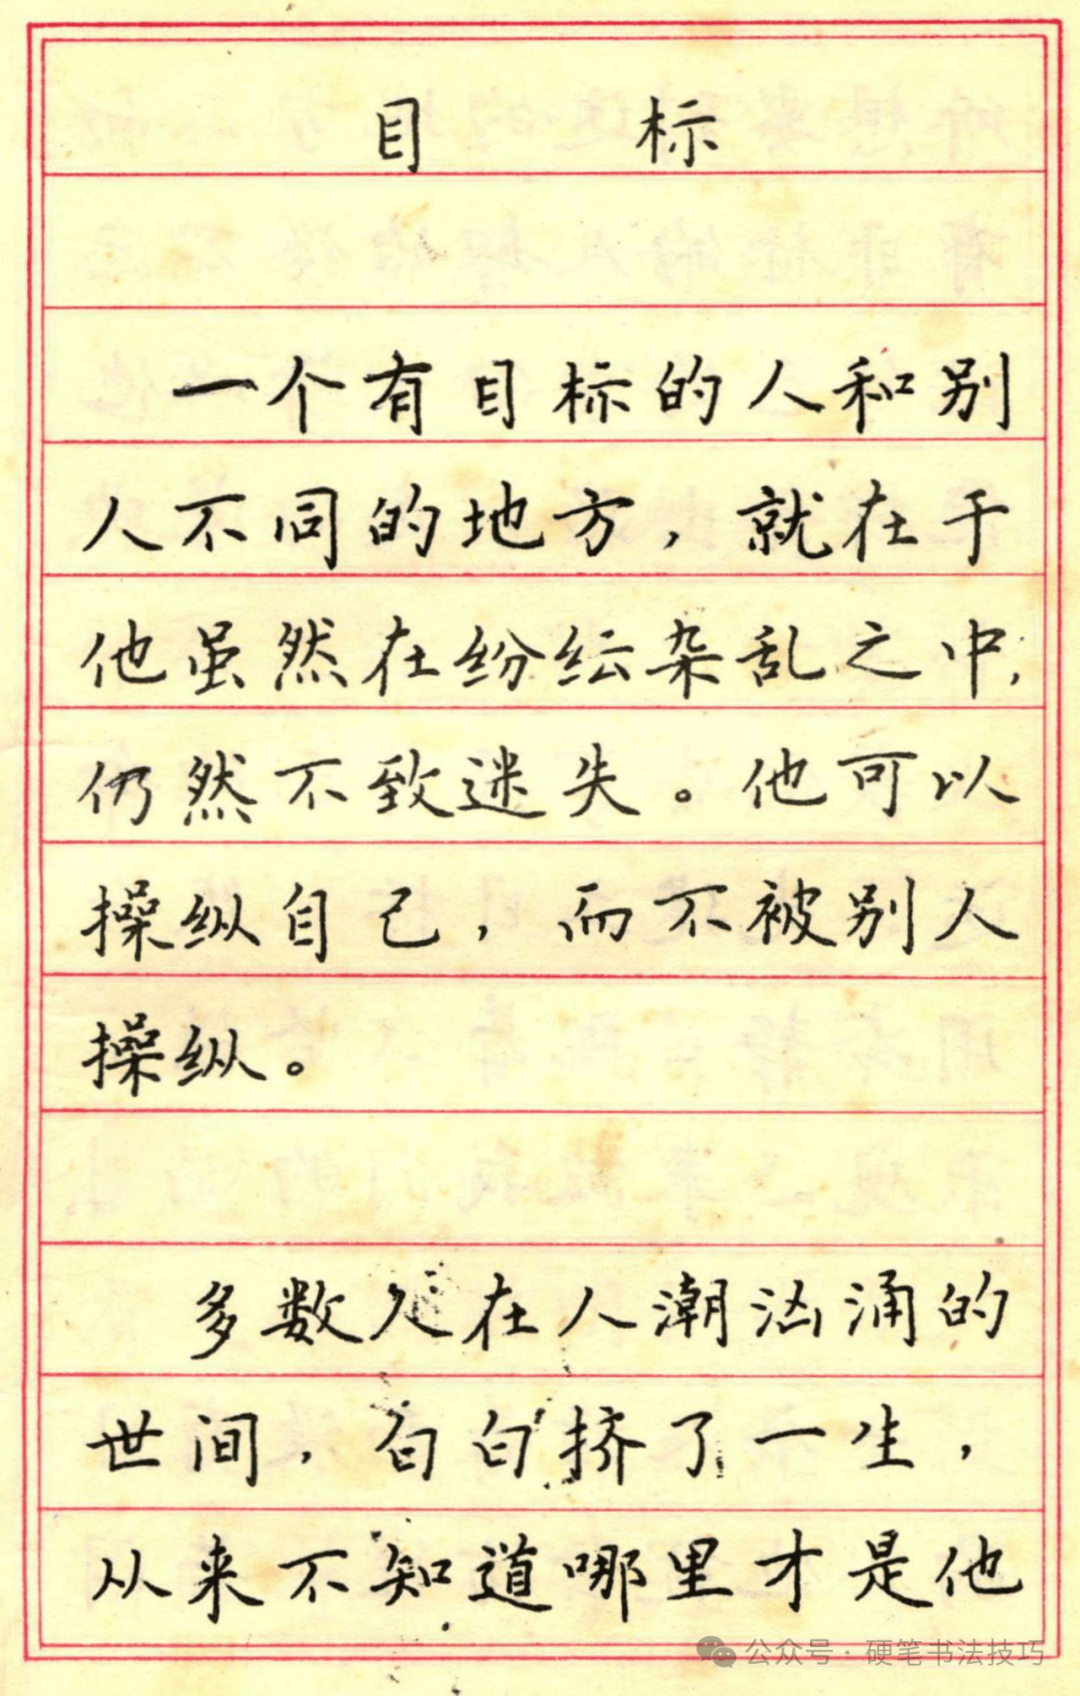 目标
一个有目标的人和别
人不同的地方，就在于
他虽然在纷纭杂乱之中，
仍然不致迷失。他可以
操纵自己，而不被别人
操纵。
多数人在人潮汹涌的
世间，白白挤了一生，
从来不知道哪里才是他
公众号·硬笔书法技巧